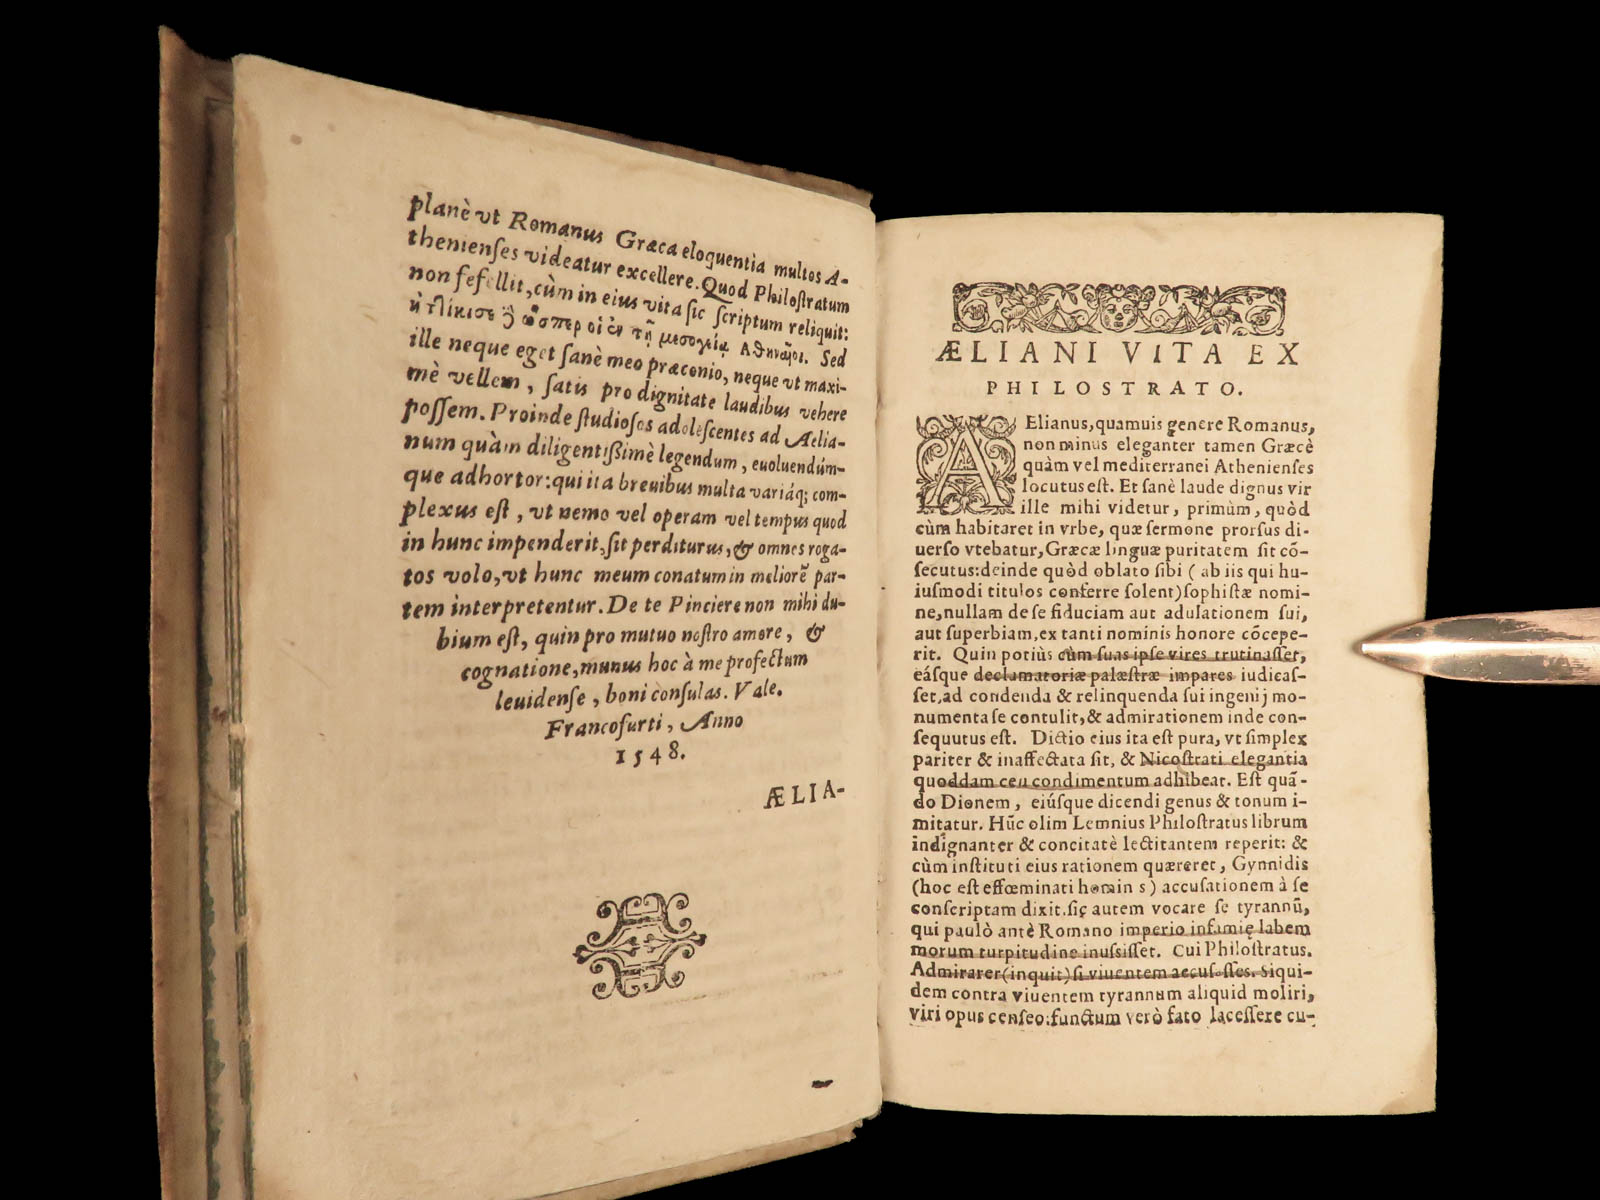 planè vt Romanus Græca eloquentia multos A-
thenienſes videatur excellere. Quod Philoſtratum
non fefellit, cùm in eius vita ſic ſcriptum reliquit:
ὥσπερ οἱ ἐν τῇ μεσογείᾳ Ἀθηναῖοι. Sed
ille neque eget ſanè meo præconio, neque vt maxi-
mè vellem, ſatis pro dignitate laudibus vehere
poſſem. Proinde ſtudioſos adoleſcentes ad Aelia-
num quàm diligentiſsimè legendum, euoluendúm-
que adhortor: qui ita breuibus multa variáq; com-
plexus eſt, vt nemo vel operam vel tempus quod
in hunc impenderit, ſit perditurus, & omnes roga-
tos volo, vt hunc meum conatum in meliorē par-
tem interpretentur. De te Pinciere non mihi du-
bium eſt, quin pro mutuo noſtro amore, &
cognatione, munus hoc à me profectum
leuidenſe, boni conſulas. Vale.
Francofurti, Anno
1548.
ÆLIA-
ÆLIANI VITA EX
PHILOSTRATO.
AElianus, quamuis genere Romanus,
non minus eleganter tamen Græcè
quàm vel mediterranei Athenienſes
locutus eſt. Et ſanè laude dignus vir
ille mihi videtur, primùm, quòd
cùm habitaret in vrbe, quæ ſermone prorſus di-
uerſo vtebatur, Græcæ linguæ puritatem ſit cō-
ſecutus: deinde quòd oblato ſibi (ab iis qui hu-
iuſmodi titulos conferre ſolent) ſophiſtæ nomi-
ne, nullam de ſe fiduciam aut adulationem ſui,
aut ſuperbiam, ex tanti nominis honore cōcepe-
rit. Quin potiùs cùm ſuas ipſe vires trutinaſſet,
eáſque declamatoriæ palæſtræ impares iudicaſ-
ſet, ad condenda & relinquenda ſui ingenij mo-
numenta ſe contulit, & admirationem inde con-
ſequutus eſt. Dictio eius ita eſt pura, vt ſimplex
pariter & inaffectata ſit, & Nicoſtrati elegantia
quoddam ceu condimentum adhibeat. Eſt quā-
do Dionem, eiúſque dicendi genus & tonum i-
mitatur. Hūc olim Lemnius Philoſtratus librum
indignanter & concitatè lectitantem reperit: &
cùm inſtituti eius rationem quæreret, Gynnidis
(hoc eſt effœminati homin s) accuſationem à ſe
conſcriptam dixit. ſic autem vocare ſe tyrannū,
qui paulò antè Romano imperio infamię labem
morum turpitudine inuſsiſſet. Cui Philoſtratus.
Admirarer (inquit) ſi viuentem accuſaſſes. Siqui-
dem contra viuentem tyrannum aliquid moliri,
viri opus cenſeo: functum verò fato laceſſere cu-